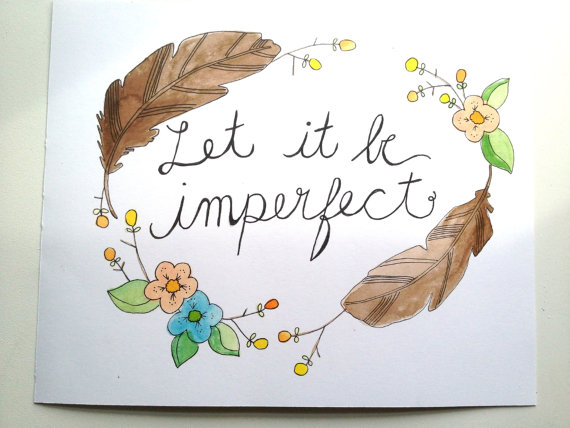 Let it be
imperfect